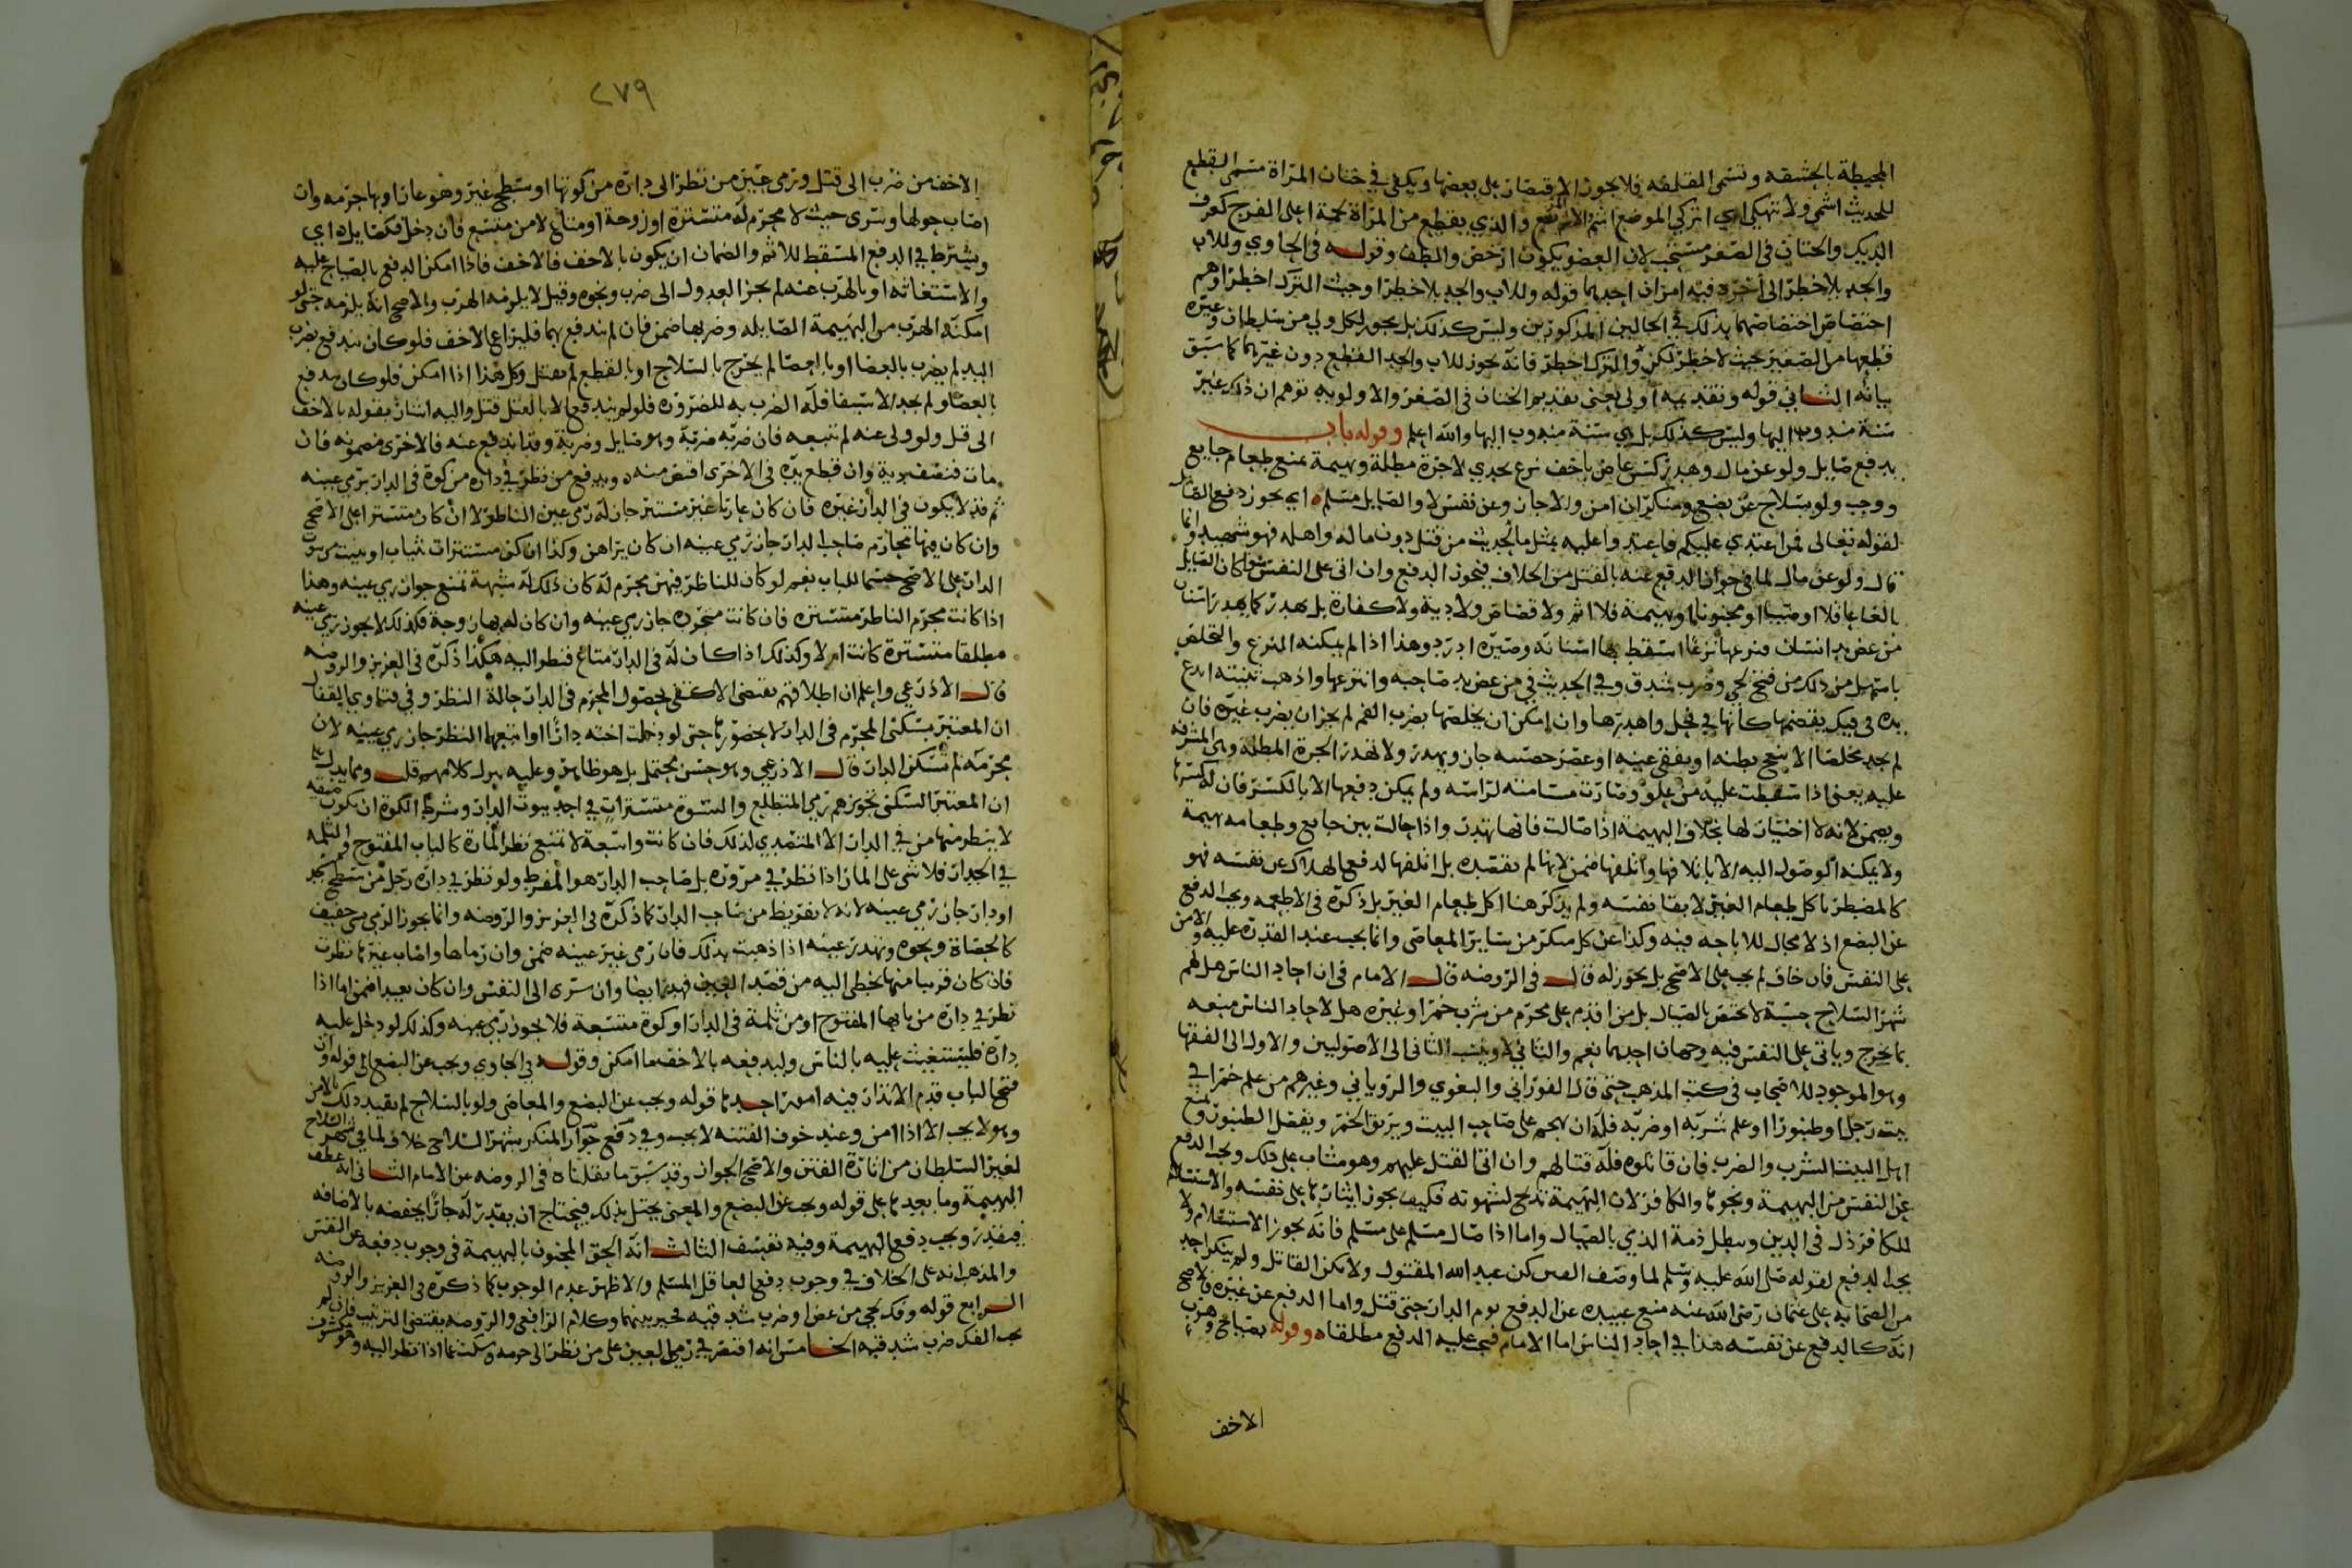 المحيطة بالحشفه وتسمى القلفه فلا يجوز الاقتصار على بعضها ويكفي في ختان المراة مسمى القطع
للحديث اشمي ولا تنهكي اي اتركي الموضع اشم والذي يقطع من المراة لحمة اعلى الفرج كعرف
الديك والختان في الصغر مستحب لان العضو يكون ارخص والطف وقوله في الحاوي وللاب
والجد بلا خطر الى اخره فيه امران احدهما قوله وللاب والجد بلا خطر او حيث الترك اخطر اوهم
اختصاص اختصاصهما بذلك في الحالين المذكورين وليس كذلك بل يجوز لكل ولي من سلطان وغيره
قطعها من الصغير حيث لا خطر لكن والترك اخطر فانه يجوز للاب والجد القطع دون غيرهما كما سبق
بيانه الثاني قوله وتقديمه اولى يعني تقديم الختان في الصغر والاولويه توهم ان ذلك غير
سنة مندوب اليها وليس كذلك بل هي سنة مندوب اليها والله اعلم وقوله باب
يدفع صايل ولو عن مال وهدر كسن عاض باخف نزع لجدي لا جرة مطلة وبهيمة تمنع طعام جايع
ووجب ولو بسلاح عن بضع ومنكر ان امن ولا جان وعن نفس لا والصايل مسلم اي يجوز دفع الصايل
لقوله تعالى فمن اعتدى عليكم فاعتدوا عليه بمثل ما الحديث من قتل دون ماله واهله فهو شهيد وانما
قال ولو عن مال لما في جواز الدفع عنه بالقتل من الخلاف فيجوز الدفع وان اتى على النفس سوا كان الصايل
بالغا عاقلا او صبيا او مجنونا او بهيمة فلا اثم ولا قصاص ولا دية ولا كفارة بل يهدر كما يهدر اسنان
من عض يد انسان فنزعها نزعا اسقط بها اسنانه وصيره ادرد وهذا اذا لم يمكنه النزع والتخلص
باسهل من ذلك من فتح لحي وضرب شدق وفي الحديث في من عض يد صاحبه وانتزعها واذهب ثنيته ايدع
يده في فيك يقضمها كانها في في فحل واهدرها وان امكن ان يخلصها بضرب الفم لم يجز ان يضرب غيره فان
لم يجد مخلصا الا بنعج بطنه او بفقي عينه او عصر خصيه جاز ويهدر ولا تهدر الجرة المطلة وهي المشرفه
عليه يعني اذا سقطت عليه من علو وصارت مسامتة لراسه ولم يمكن دفعها الا بالكسر فان له كسرها
ويضمن لانه لا اختيار لها بخلاف البهيمة اذا صالت فانها تهدر واذا حالت بين جايع وطعامه بهيمة
ولا يمكنه الوصول اليه الا باتلافها واتلفها ضمن لانها لم تقصده بل اتلفها لدفع الهلاك عن نفسه فهو
كالمضطر ياكل طعام الغير لابقا نفسه ولم يذكر هنا اكل طعام الغير بل ذكره في الاطعمه ويجب الدفع
عن البضع اذ لا مجال للاباحه فيه وكذا عن كل منكر من ساير المعاصي وانما يجب عند القدرة عليه والامن
على النفس فان خاف لم يجب على الاصح بل يجوز له قال في الروضه قال الامام في ان احاد الناس هل لهم
شهر السلاح حسبة لا تختص بالصيال بل من اقدم على محرم من شرب خمر او غيره هل لاحاد الناس منعه
بما يجرح وياتي على النفس فيه وجهان احدهما نعم والثاني لا وينسب الثاني الى الاصوليين والاول الى الفقها
وهو الموجود للاصحاب في كتب المذهب حتى قال الفوراني والبغوي والروياني وغيرهم من علم خمرا في
بيت رجل او طنبورا او علم شربه او ضربه فله ان يهجم على صاحب البيت ويريق الخمر ويفصل الطنبور ويمنع
اهل البيت الشرب والضرب فان قاتلوه فله قتالهم وان اتى القتل عليهم وهو مثاب على ذلك ويجب الدفع
عن النفس من البهيمة ونحوها والكافر لان البهيمة تذبح لشهوته فكيف يجوز ايثارها على نفسه والاستسلام
للكافر ذل في الدين وسطل ذمة الذمي بالصيال واما اذا صال مسلم على مسلم فانه يجوز الاستسلام ولا
يجب الدفع لقوله صلى الله عليه وسلم لما وصف الفتن كن عبد الله المقتول ولا تكن القاتل ولم ينكر احد
من الصحابه على عثمان رضي الله عنه منع عبيده عن الدفع يوم الدار حتى قتل واما الدفع عن غيره فالاصح
انه كالدفع عن نفسه هذا في احاد الناس اما الامام فيجب عليه الدفع مطلقا وقوله بصياح وهرب
الاخف
٢٧٩
الاخف من ضرب الى قتل ورمى عين من نظر الى داره من كوتها او سطح غير وهو عار او بها حرمه وان
اصاب حولها وسرى حيث لا محرم له متسترة او زوجة او متاع لا من متسع فان دخل فكصايل اي
ويشترط في الدفع المسقط للاثم والضمان ان يكون بالاخف فالاخف فاذا امكن الدفع بالصياح عليه
والاستغاثه او بالهرب عنه لم يجز العدول الى ضرب ونحوه وقيل لا يلزمه الهرب والاصح انه يلزمه حتى لو
امكنه الهرب من البهيمة الصايله وضربها ضمن فان لم يندفع بهما فليراع الاخف فلو كان يندفع بضرب
اليد لم يضرب بالعصا او بالعصا لم يجرح بالسلاح او بالقطع لم يقتل وكل هذا اذا امكن فلو كان يندفع
بالعصا ولم يجد الا سيفا فله الضرب به للضرورة فلو لم يندفع الا بالقتل قتل واليه اشار بقوله بالاخف
الى قتل ولو ولى عنه لم يتبعه فان ضربه ضربة وهو صايل وضربة وقد اندفع عنه فالاخرى مضمونه فان
مات فنصف دية وان قطع يده في الاخرى اقتص منه ويدفع من نظر في داره من كوة في الدار برمي عينه
ثم قد لا يكون في الدار غيره فان كان عاريا غير مستتر جاز له رمي عين الناظر لا ان كان مستترا على الاصح
وان كان فيها محارم صاحب الدار جاز رمي عينه ان كان يراهن وكذا ان كن مستترات بثياب او بيت من بيوت
الدار على الاصح حسما للباب نعم لو كان للناظر فيهن محرم له كان ذلك له شبهة تمنع جواز رمي عينه وهذا
اذا كانت محرم الناظر مستتره فان كانت متجرده جاز رمي عينه وان كان له بها زوجة فكذلك لا يجوز رمي عينه
مطلقا متسترة كانت ام لا وكذلك اذا كان له في الدار متاع فنظر اليه هكذا ذكره في العزيز والروضه
قال الاذرعي واعلم ان اطلاقهم يقتضي الاكتفى بحصول المحرم في الدار حالة النظر وفي فتاوي القفال
ان المعتبر بسكنى المحرم في الدار لا بحضورها حتى لو دخلت اخته دارا او اتبعها النظر جاز رمي عينه لان
محرمه لم تسكن الدار قال الاذرعي وهو حسن محتمل بل هو ظاهر وعليه ينزل كلامهم قلت ومما يدل على
ان المعتبر السكنى تجويزهم رمي المتطلع والنسوة مستترات في احد بيوت الدار وشرط الكوة ان تكون ضيقه
لا ينظر منها من في الدار الا المتصدي لذلك فان كانت واسعة لا تمنع نظر المارة كالباب المفتوح والثلمه
في الجدار فلا شي على المار اذا نظر في مروره بل صاحب الدار هو المفرط ولو نظر في داره رجل من سطح مسجد
او دار جاز رمي عينه لانه لا تفريط من صاحب الدار كما ذكره في العزيز والروضه وانما يجوز الرمي بشي خفيف
كالحصاة ونحوه وتهدر عينه اذا ذهبت بذلك فان رمى غير عينه ضمن وان رماها واصاب غيرها نظرت
فان كان قريبا منها يخطي اليه من قصد العين فهدر ايضا وان سرى الى النفس وان كان بعيدا ضمن اما اذا
نظر في داره من بابها المفتوح او من ثلمة في الدار او كوة متسعة فلا يجوز رمي عينه وكذلك لو دخل عليه
داره فليستغيث عليه بالناس وليدفعه بالاخف ما امكن وقوله في الحاوي ويجب عن البضع الى قوله وان
فتح الباب قدم الانذار فيه امور احدها قوله ويجب عن البضع والمعاصي ولو بالسلاح لم يقيد ذلك بالامن
وهو لا يجب الا اذا امن وعند خوف الفتنه لا يجب وفي دفع جواز المنكر بشهر السلاح خلاف لما في شهر السلاح
لغير السلطان من اثارة الفتن والاصح الجواز وقد سبق ما نقلناه في الروضه عن الامام الثاني انه عطف
البهيمة وما بعدها على قوله ويجب عن البضع والمعنى يختل بذلك فيحتاج ان يقدر له جارا يخفضه بالاضافه
فيقدر ويجب دفع البهيمة وفيه تعسف الثالث انه الحق المجنون بالبهيمة في وجوب دفعه عن النفس
والمذهب انه على الخلاف في وجوب دفع العاقل المسلم والاظهر عدم الوجوب كما ذكره في العزيز والروضه
الرابع قوله وفك لحي من عض او ضرب شدقيه تخيير بينهما وكلام الرافعي والروضه يقتضي الترتيب فان لم
يجب الفك ضرب شدقيه الخامس انه اقتصر في رمي العين على من نظر الى حرمه وسكت عما اذا نظر اليه وهو مكشوف